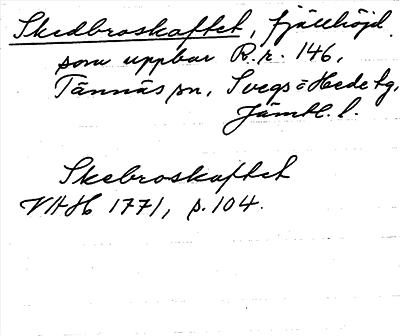 Skedbroskaftet, fjällhöjd
som uppbar R.r. 146,
Tännäs sn, Svegs = Hede tg,
Jämtl. l.
Skebroskaftet
VHH 1771, s. 104.